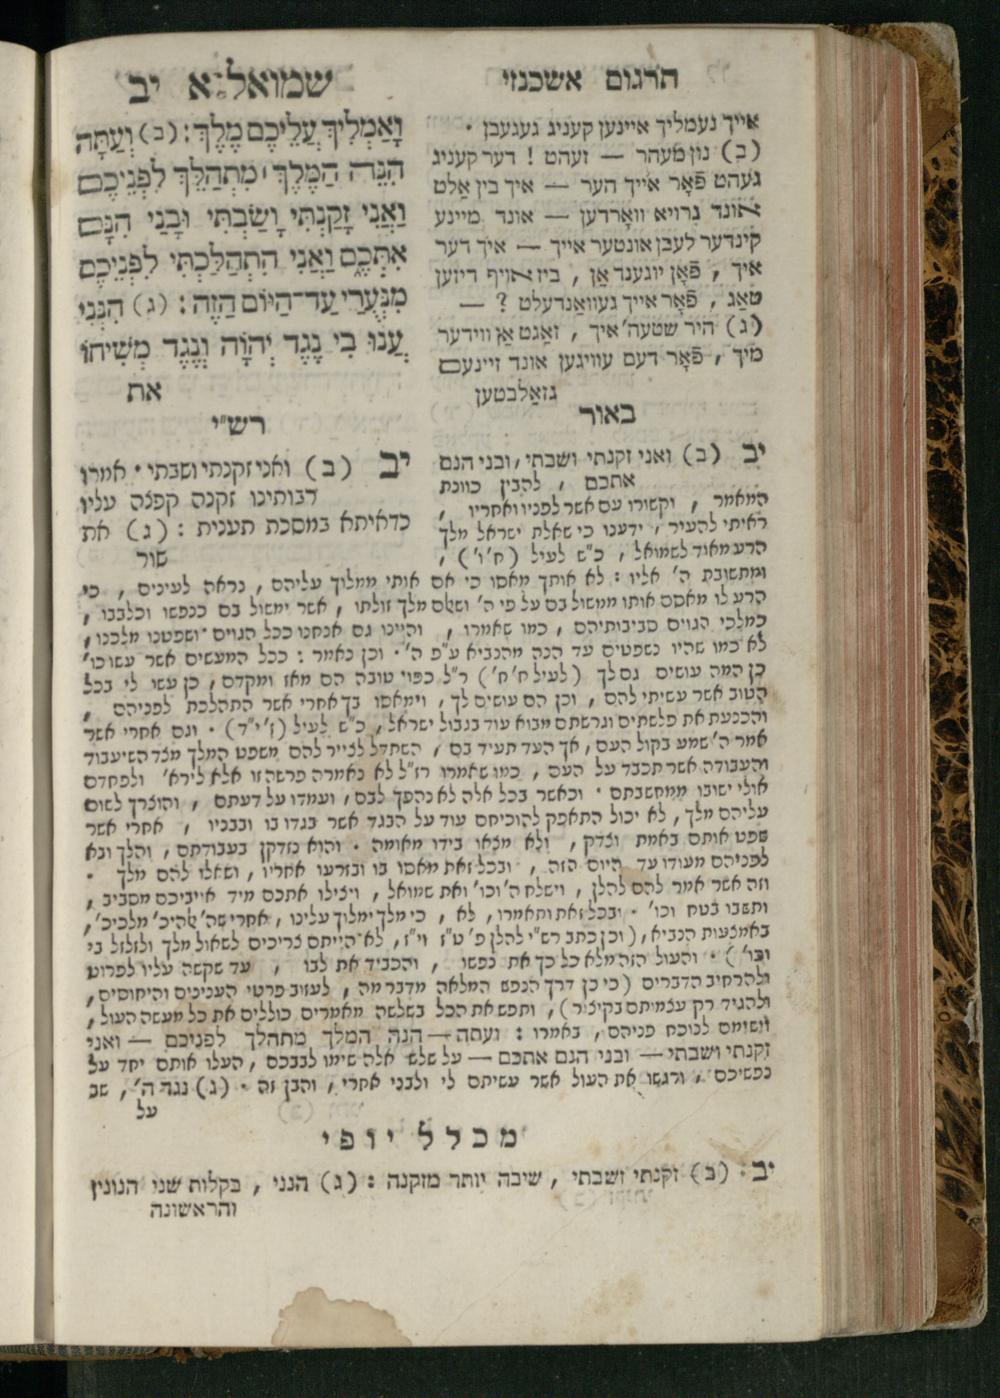 תרגום אשכנזי
שמואל א יב
אייך נעמליך איינען קעניג געגעבן .
(ב) נון מעהר — זעהט ! דער קעניג
געהט פֿאָר אייך הער — איך בין אַלט
אונד גרויא וואָרדען — אונד מיינע
קינדער לעבן אונטער אייך — איך דער
איך , פֿאָן יוגענד אַן , ביז אויף דיזען
טאַג , פֿאָר אייך געוואַנדעלט ? —
(ג) היר שטעה' איך , זאַגט אַז ווידער
מיך , פֿאָר דעם עוויגען אונד זיינעם
גזאַלבטען
וָאַמְלִיךְ עֲלֵיכֶם מֶלֶךְ : (ב) וְעַתָּה
הִנֵּה הַמֶּלֶךְ ׀ מִתְהַלֵּךְ לִפְנֵיכֶם
וַאֲנִי זָקַנְתִּי וָשַׂבְתִּי וּבָנַי הִנָּם
אִתְּכֶם וַאֲנִי הִתְהַלַּכְתִּי לִפְנֵיכֶם
מִנְּעֻרַי עַד־הַיּוֹם הַזֶּה : (ג) הִנְנִי
עֲנוּ בִי נֶגֶד יְהֹוָה וְנֶגֶד מְשִׁיחוֹ
את
באור
יב (ב) ואני זקנתי ושבתי , ובני הנם
אתכם , להבין כוונת
המאמר , וקשורו עם אשר לפניו ואחריו ,
ראיתי להעיר , ידענו כי שאלת ישראל מלך
הרע מאוד לשמואל , כ"ש לעיל (ח' ו') ,
רש"י
יב (ב) ואני זקנתי ושבתי . אמרו
רבותינו זקנה קפצה עליו
כדאיתא במסכת תענית : (ג) את
שור
ומתשובת ה' אליו : לא אותך מאסו כי אם אותי ממלוך עליהם , נראה לעינים , כי
הרע לו מאסם אותו ממשול בם על פי ה' ושאלם מלך זולתו , אשר ימשול בם כנפשו וכלבבו ,
כמלכי הגוים סביבותיהם , כמו שאמרו , והיינו גם אנחנו ככל הגוים ושפטנו מלכנו ,
לא כמו שהיו נשפטים עד הנה מהנביא ע"פ ה' . וכן נאמר : ככל המעשים אשר עשו כו'
כן המה עושים גם לך (לעיל ח' ח') ר"ל כפוי טובה הם מאז ומקדם , כן עשו לי בכל
הטוב אשר עשיתי להם , וכן הם עושים לך , וימאסו בך אחרי אשר התהלכת לפניהם ,
והכנעת את פלשתים וגרשתם מבוא עוד בגבול ישראל , כ"ש לעיל (ז' י"ד) . וגם אחרי אשר
אמר ה' שמע בקול העם , אך העד תעיד בם , השתדל לצייר להם משפט המלך מצד השיעבוד
והעבודה אשר תכבד על העם , כמו שאמרו רז"ל לא נאמרה פרשה זו אלא לירא' ולפחדם
אולי ישובו ממחשבתם . וכאשר בכל אלה לא נהפך לבם , ועמדו על דעתם , והוצרך לשום
עליהם מלך , לא יכול התאפק להוכיחם עוד על הבגד אשר בגדו בו ובבניו , אחרי אשר
שפט אותם באמת וצדק , ולא מצאו בידו מאומה . והוא נזדקן בעבודתם , והלך ובא
לפניהם מעודו עד היום הזה , ובכל זאת מאסו בו ובזרעו אחריו , ושאלו להם מלך .
וזה אשר אמר להם להלן , וישלח ה' וכו' ואת שמואל , ויצילו אתכם מיד אייביכם מסביב ,
ותשבו בטח וכו' . ובכל זאת ותאמרו , לא , כי מלך ימלוך עלינו , אחרי שה' אלהיכ' מלכיכ' ,
באמצעות הנביא , (וכן כתב רש"י להלן פ' ט"ז וי"ז , לא הייתם צריכים לשאול מלך ולזלזל בי
וכו') . והעול הזה מלא כל כך את נפשו , והכביד את לבו , עד שקשה עליו לפרוט
ולהרחיב הדברים (כי כן דרך הנפש המלאה מדבר מה , לעזוב פרטי הענינים והיחוסים ,
ולהגיד רק עצמיתם בקיצור) , ותפש את הכל בשלשה מאמרים כוללים את כל מעשה העול ,
וישימם לנוכח פניהם , באמרו : ועתה — הנה המלך מתהלך לפניכם — ואני
זקנתי ושבתי — ובני הנם אתכם — על שלש אלה שימו לבבכם , העלו אותם יחד על
נפשיכם , ורגשו את העול אשר עשיתם לי ולבני אחרי , והבן זה . (ג) נגד ה' , שב
על
מכלל יופי
יב (ב) זקנתי ושבתי , שיבה יותר מזקנה : (ג) הנני , בקלות שני הנונין
והראשונה